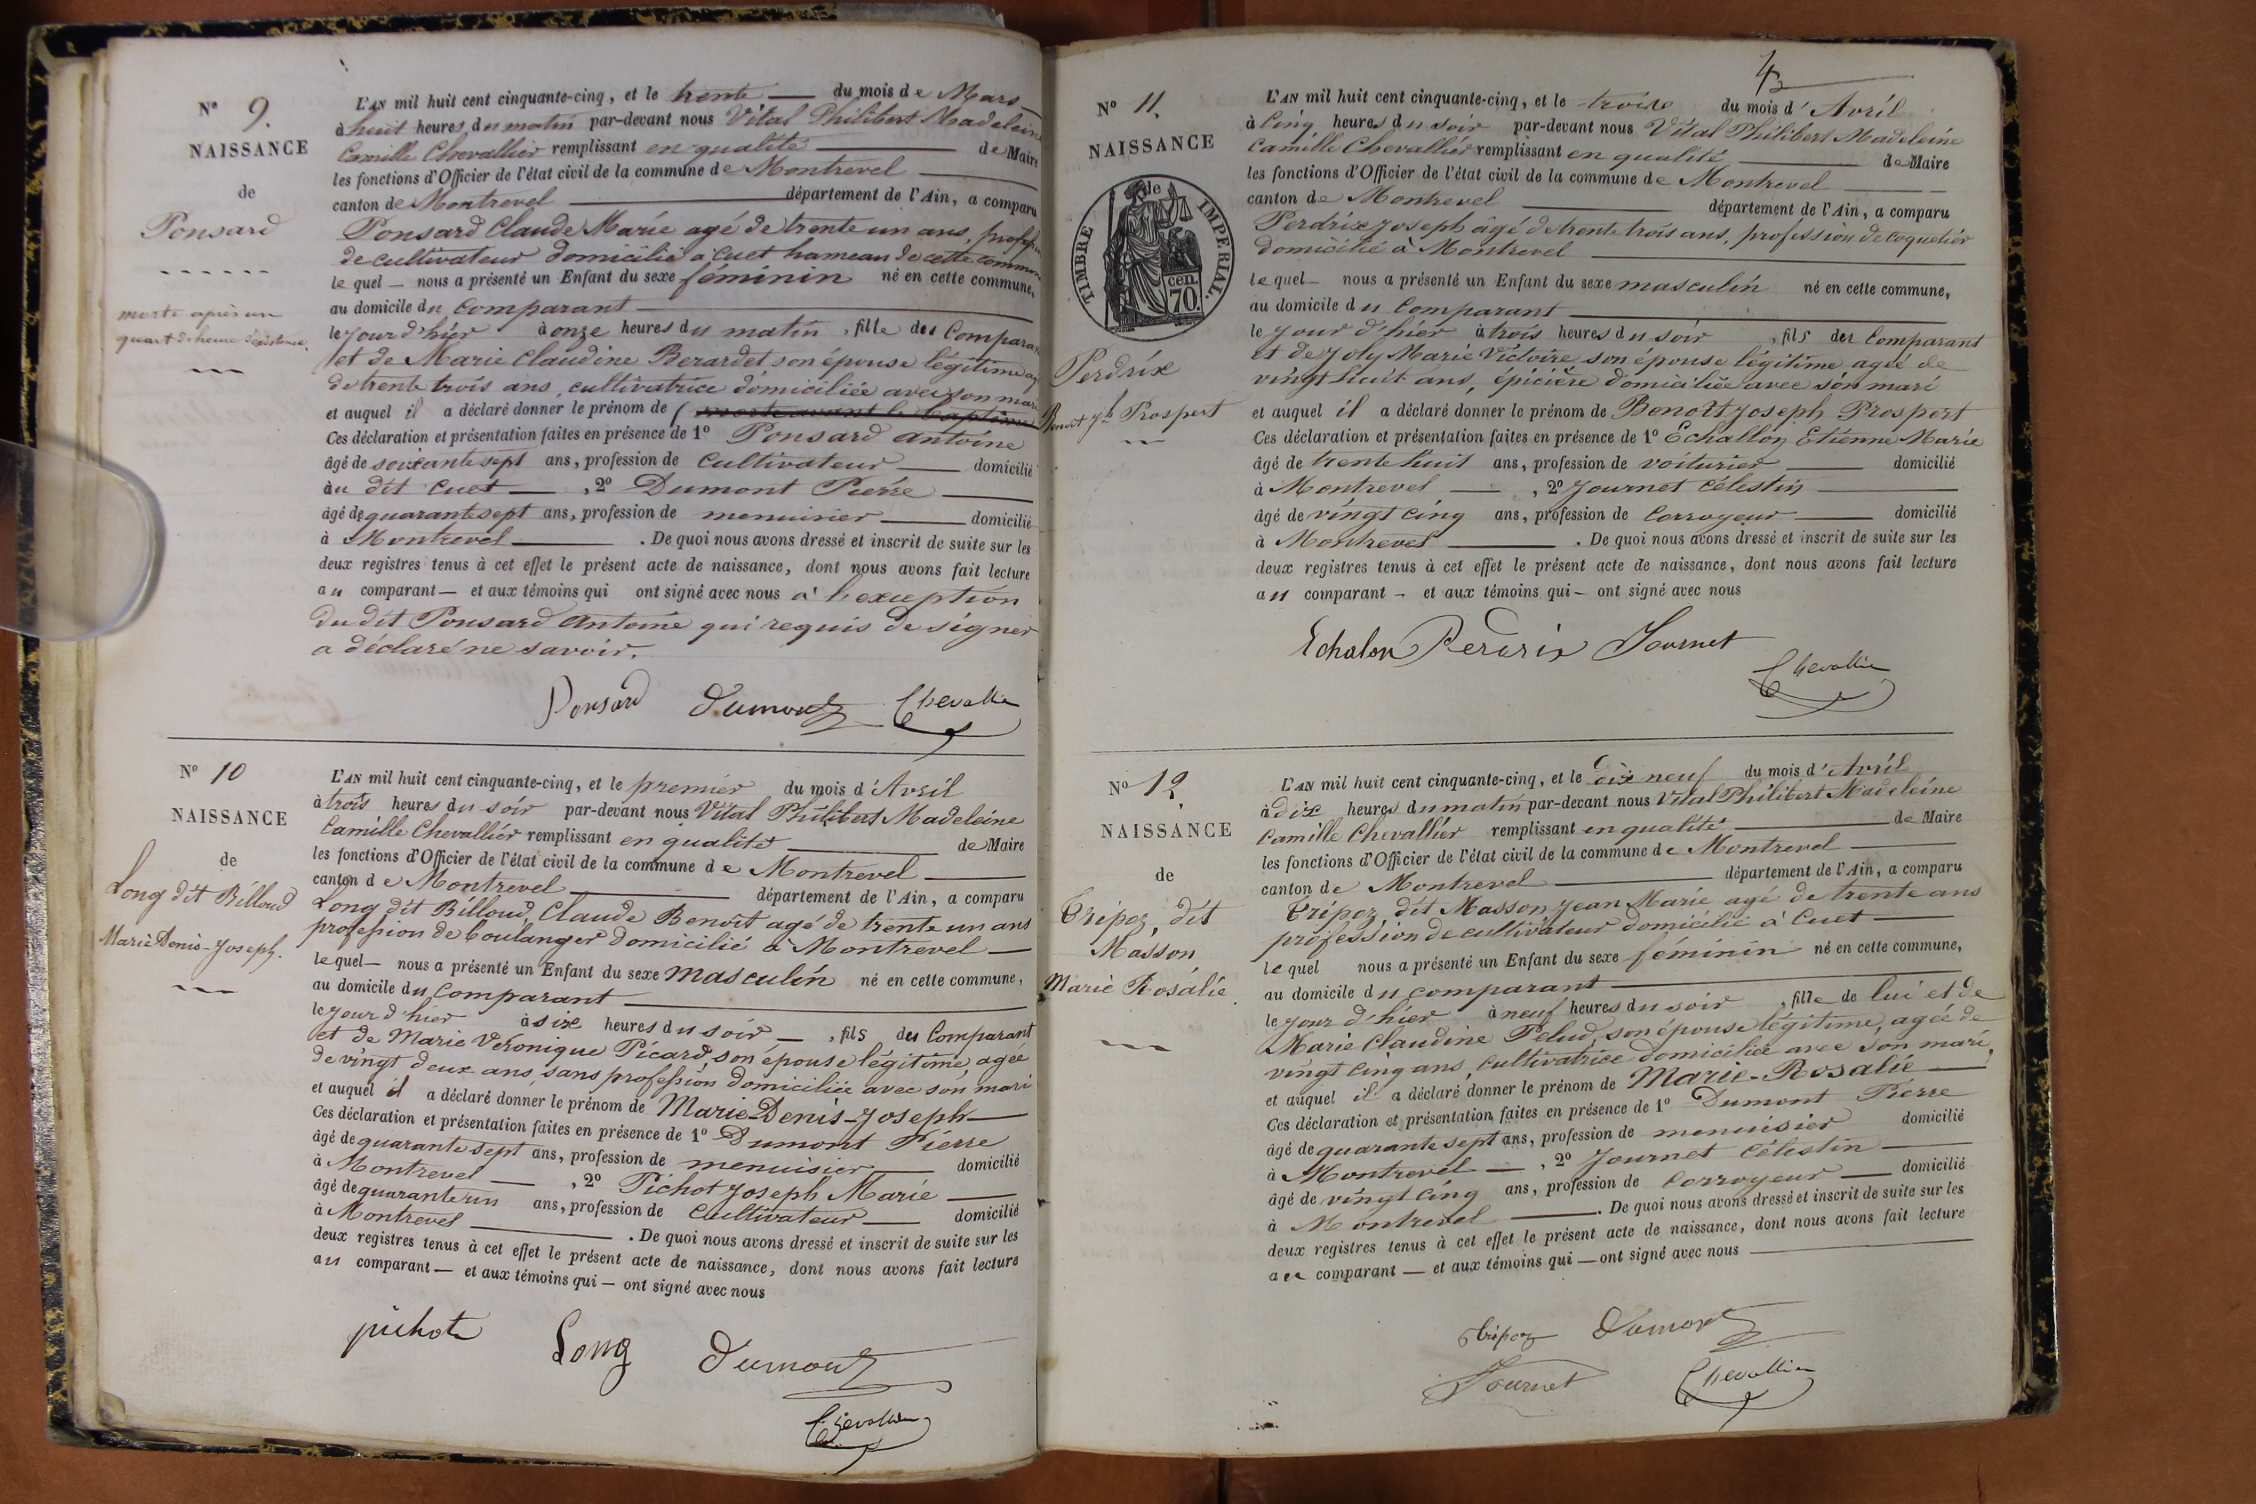 N° 9.
NAISSANCE
de
Ponsard
morte après un
quart d'heure d'existence.
L'AN mil huit cent cinquante-cinq, et le trente du mois de Mars
à huit heures du matin par-devant nous Vital Philibert Madeleine
Camille Chevallier remplissant en qualité de Maire
les fonctions d'Officier de l'état civil de la commune de Montrevel
canton de Montrevel département de l'Ain, a comparu
Ponsard Claude Marie agé de trente un ans, profession
de cultivateur domicilié à Cuet hameau de cette commune
lequel — nous a présenté un Enfant du sexe féminin né en cette commune,
au domicile du comparant
le jour d'hier à onze heures du matin, fille des Comparant
et de Marie Claudine Berardet son épouse légitime agée
de trente trois ans, cultivatrice domiciliée avec son mari
et auquel il a déclaré donner le prénom de (morte avant le baptême)
Ces déclaration et présentation faites en présence de 1° Ponsard Antoine
âgé de soixante sept ans, profession de cultivateur domicilié
au dit Cuet —, 2° Dumont Pierre
âgé de quarante sept ans, profession de menuisier domicilié
à Montrevel. De quoi nous avons dressé et inscrit de suite sur les
deux registres tenus à cet effet le présent acte de naissance, dont nous avons fait lecture
au comparant — et aux témoins qui ont signé avec nous à l'exception
du dit Ponsard Antoine qui requis de signer
a déclaré ne savoir.
Ponsard Dumont Chevallier
N° 10
NAISSANCE
de
Long dit Billoud
Marie Denis-Joseph.
L'AN mil huit cent cinquante-cinq, et le premier du mois d'Avril
à trois heures du soir par-devant nous Vital Philibert Madeleine
Camille Chevallier remplissant en qualité de Maire
les fonctions d'Officier de l'état civil de la commune de Montrevel
canton de Montrevel département de l'Ain, a comparu
Long dit Billoud, Claude Benoît agé de trente un ans
profession de boulanger domicilié à Montrevel
lequel — nous a présenté un Enfant du sexe masculin né en cette commune,
au domicile du comparant
le jour d'hier à six heures du soir —, fils des Comparant
et de Marie Véronique Picard, son épouse légitime, agée
de vingt deux ans, sans profession domiciliée avec son mari
et auquel il a déclaré donner le prénom de Marie-Denis-Joseph
Ces déclaration et présentation faites en présence de 1° Dumont Pierre
âgé de quarante sept ans, profession de menuisier domicilié
à Montrevel —, 2° Pichot Joseph Marie
âgé de quarante un ans, profession de cultivateur domicilié
à Montrevel. De quoi nous avons dressé et inscrit de suite sur les
deux registres tenus à cet effet le présent acte de naissance, dont nous avons fait lecture
au comparant — et aux témoins qui — ont signé avec nous
pichot Long Dumont
Chevallier
N° 11.
NAISSANCE
de
TIMBRE IMPERIAL.
cen. 70.
Perdrix
Benoît Jh Prospert
L'AN mil huit cent cinquante-cinq, et le trois du mois d'Avril
à cinq heures du soir par-devant nous Vital Philibert Madeleine
Camille Chevallier remplissant en qualité de Maire
les fonctions d'Officier de l'état civil de la commune de Montrevel
canton de Montrevel département de l'Ain, a comparu
Perdrix Joseph âgé de trente trois ans, profession de coquetier
domicilié à Montrevel
lequel — nous a présenté un Enfant du sexe masculin né en cette commune,
au domicile du comparant
le jour d'hier à trois heures du soir, fils des comparant
et de Joly Marie Victoire son épouse légitime agée de
vingt huit ans, épicière domiciliée avec son mari
et auquel il a déclaré donner le prénom de Benoît Joseph Prospert
Ces déclaration et présentation faites en présence de 1° Echallon Etienne Marie
âgé de trente huit ans, profession de voiturier domicilié
à Montrevel —, 2° Journet Célestin
âgé de vingt cinq ans, profession de Corroyeur domicilié
à Montrevel. De quoi nous avons dressé et inscrit de suite sur les
deux registres tenus à cet effet le présent acte de naissance, dont nous avons fait lecture
au comparant — et aux témoins qui — ont signé avec nous
Echalon Perdrix Journet
Chevallier
N° 12.
NAISSANCE
de
Tripoz, dit
Masson
Marie Rosalie.
L'AN mil huit cent cinquante-cinq, et le dix neuf du mois d'Avril
à dix heures du matin par-devant nous Vital Philibert Madeleine
Camille Chevallier remplissant en qualité de Maire
les fonctions d'Officier de l'état civil de la commune de Montrevel
canton de Montrevel département de l'Ain, a comparu
Tripoz, dit Masson Jean Marie agé de trente ans
profession de cultivateur domicilié à Cuet
lequel nous a présenté un Enfant du sexe féminin né en cette commune,
au domicile du comparant
le jour d'hier à neuf heures du soir, fille de lui et de
Marie Claudine Pelud, son épouse légitime, agée de
vingt cinq ans, cultivatrice domiciliée avec son mari,
et auquel il a déclaré donner le prénom de Marie-Rosalie
Ces déclaration et présentation faites en présence de 1° Dumont Pierre
âgé de quarante sept ans, profession de menuisier domicilié
à Montrevel —, 2° Journet Célestin
âgé de vingt cinq ans, profession de Corroyeur domicilié
à Montrevel. De quoi nous avons dressé et inscrit de suite sur les
deux registres tenus à cet effet le présent acte de naissance, dont nous avons fait lecture
au comparant — et aux témoins qui — ont signé avec nous
Tripoz Dumont
Journet Chevallier